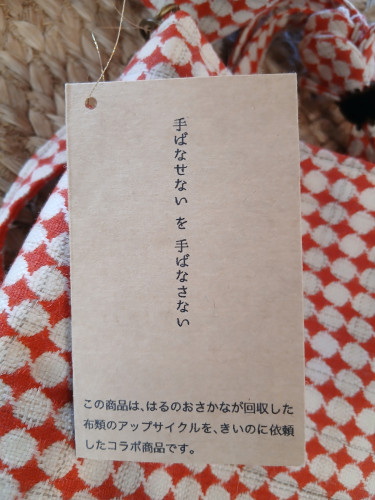 手ばなせない を 手ばなさない
この商品は、はるのおさかなが回収した
布類のアップサイクルを、きいのに依頼
したコラボ商品です。